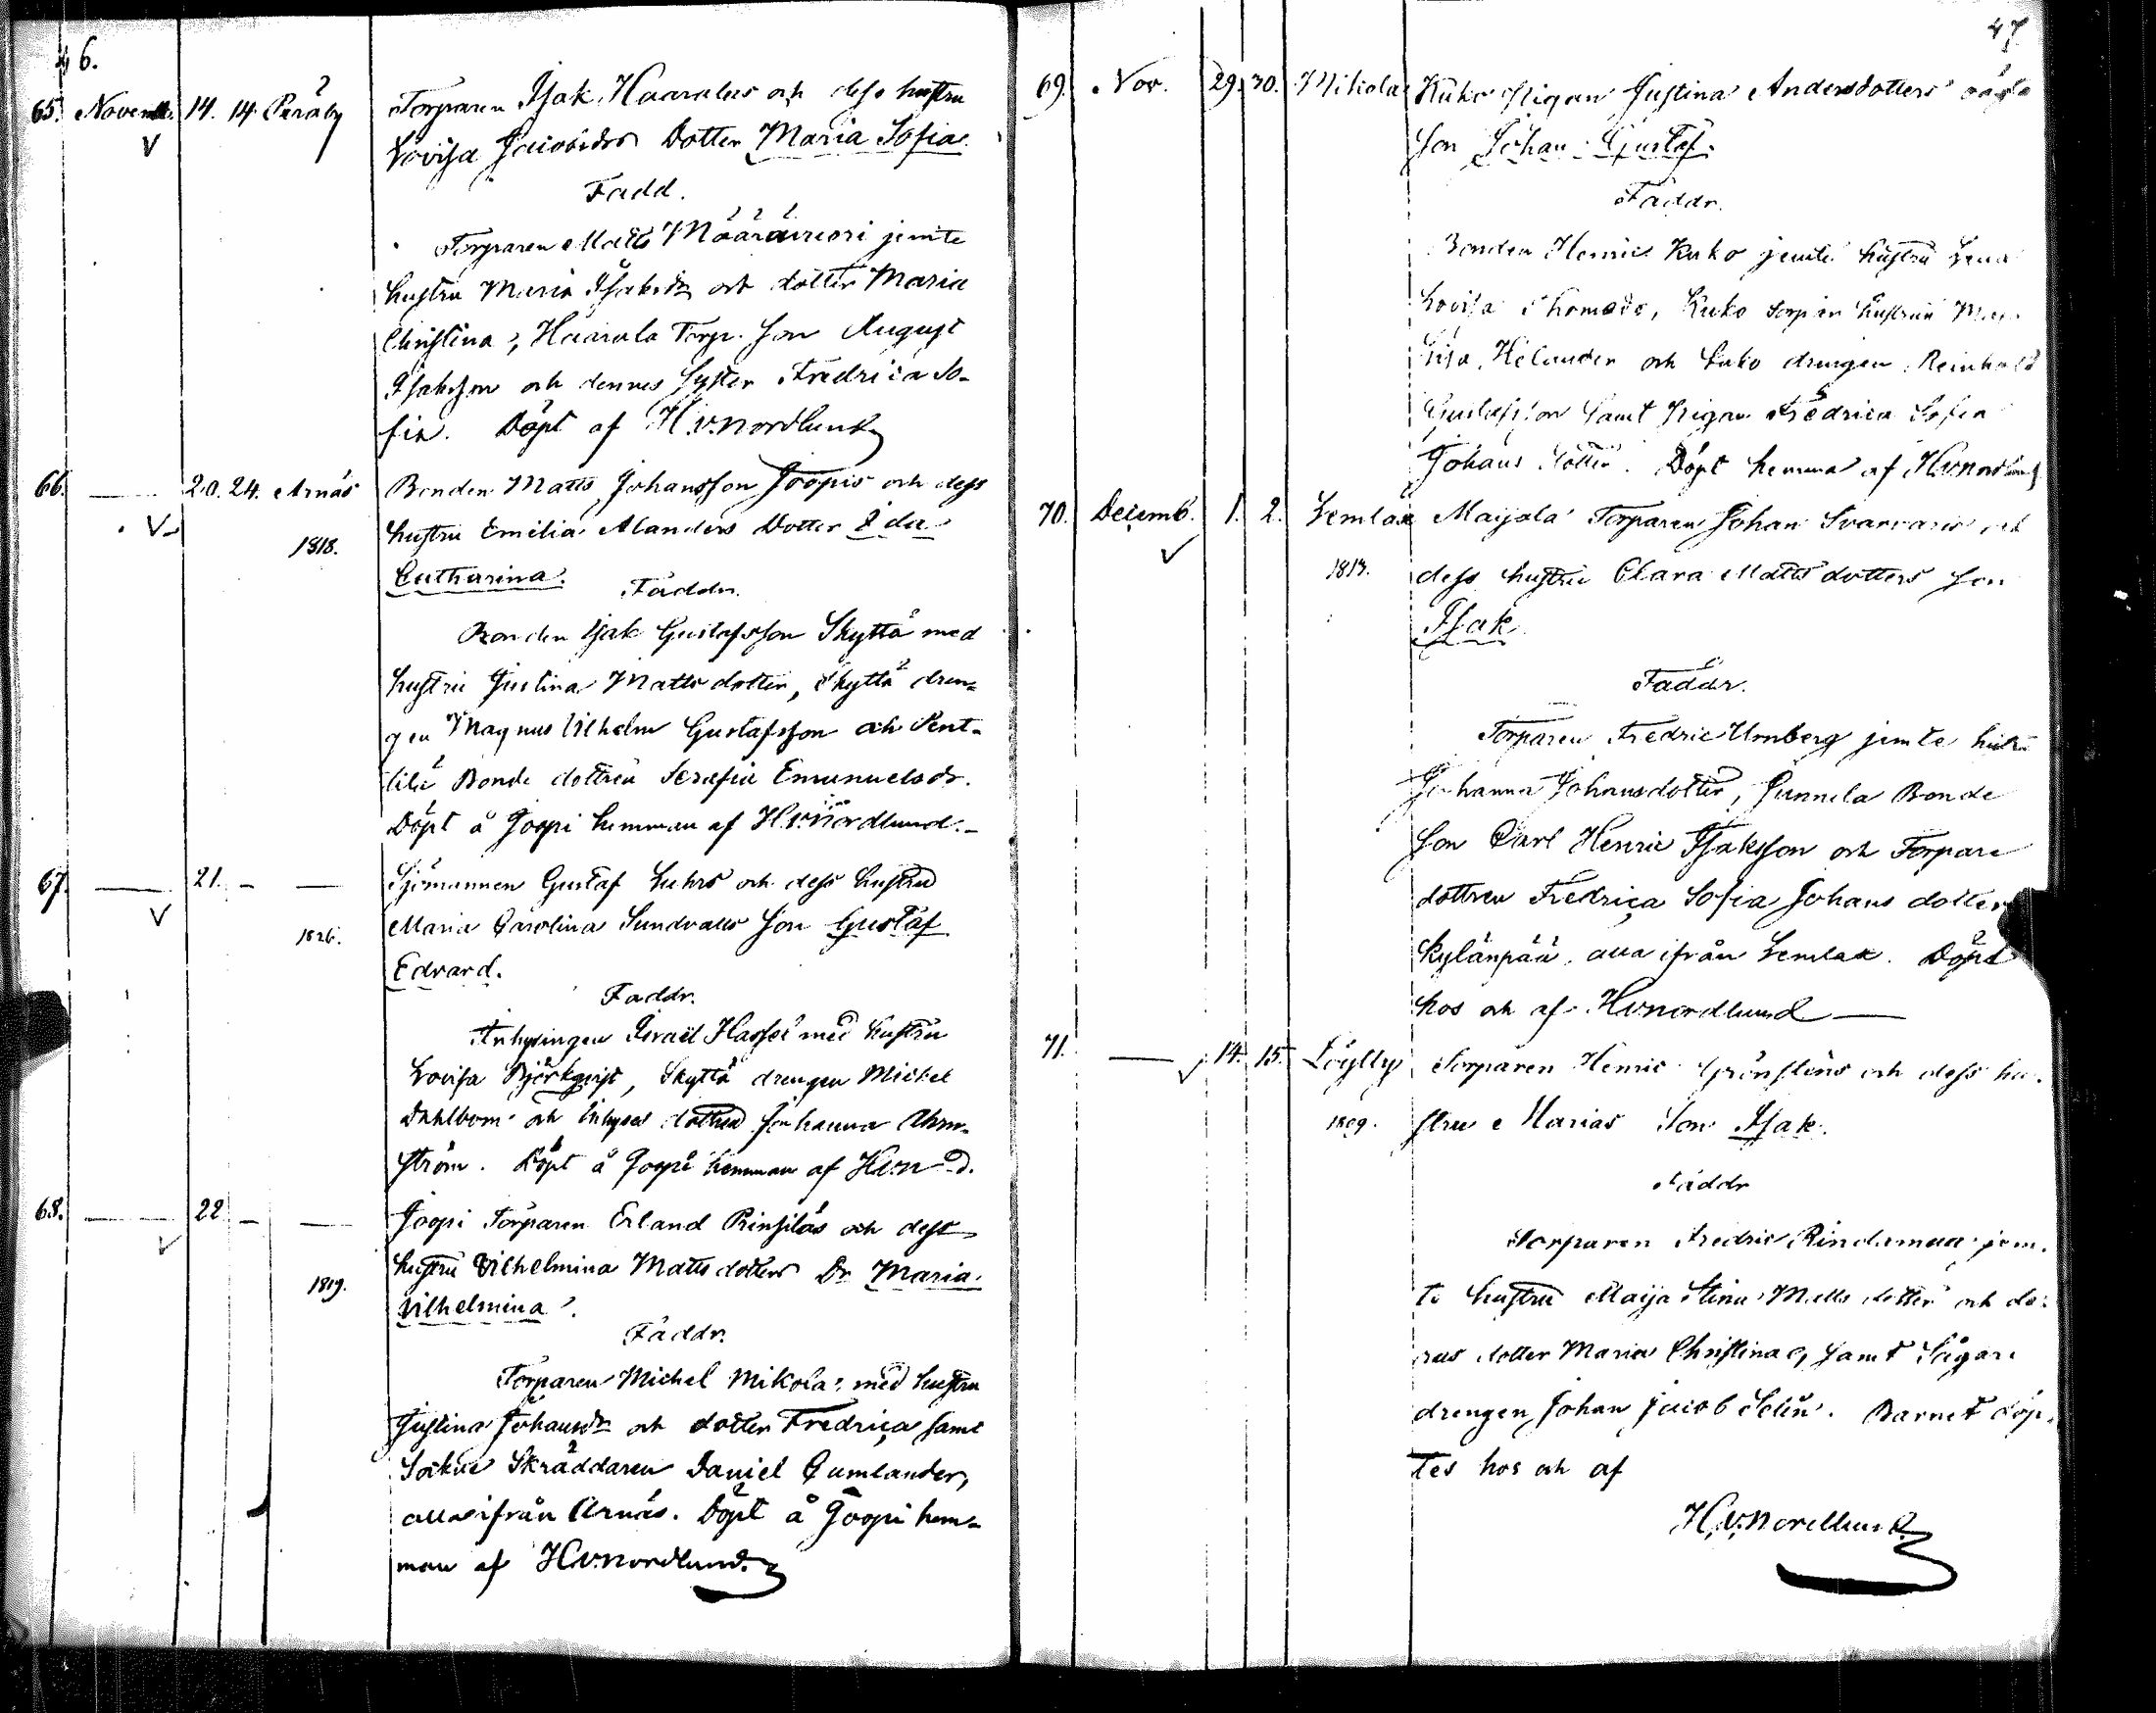 46.
65. Novemb. 14. 14. Peräby Torparen Isak Haaralas och dess hustru
Lovisa Jacobsdrs Dotter Maria Sofia.
Fadd.
Torparen Matts Määräivuori jemte
hustru Maria Isaksdr och dotter Maria
Christina, Haarala Torp. Son August
Isaksson och dennes Syster Fredrica So-
fia. Döpt af H.v.nordlund
66. — 20. 24. Arnäs Bonden Matts Johansson Joopis och dess
1818. hustru Emilia Alanders Dotter Ida
Catharina.
Faddr.
Bonden Isak Gustafsson Skyttä med
hustru Justina Mattsdotter, Skyttä dren-
gen Magnus Vilhelm Gustafsson och Pent-
tilä Bonde dottren Serafia Emanuelsdr.
Döpt å Joopi hemman af H.v.nordlund.—
67. — 21. — — Sjömannen Gustaf Luhrs och dess hustru
1826. Maria Carolina Sundvalls Son Gustaf
Edvard.
Faddr.
Inhysingen Israel Hassel med hustru
Lovisa Björkqvist, Skyttä drengen Michel
Dahlbom och Inhyses dottren Johanna Ahrn-
ström. Döpt å Joopi hemman af H.v.n—d.
68. — 22 — — Joopi Torparen Erland Prinsiläs och dess
1819. hustru Vilhelmina Matts dotters Dr Maria
Vilhelmina.
Faddr.
Torparen Michel Mikola med hustru
Justina Johansdr och dotter Fredrica samt
Sockne Skräddaren Daniel Gumlander,
alla ifrån Arnäs. Döpt å Joopi hem-
man af H.v.nordlund.
47
69. Nov. 29. 30. Mikola Kuko Pigan Justina Andersdotters oägta
Son Johan Gustaf.
Faddr.
Bonden Henric Kuko jemte hustru Lena
Lovisa Thomasdr, Kuko torpar hustrun
Lisa Helander och Kuko drengen Reinhold
Gustafsson samt Pigan Fredrica Sofia
Johans dotter. Döpt hemma af H.v.nordlund
70. Decemb. 1. 2. Lemlax Maijala Torparen Johan Svarvars och
1813. dess hustru Clara Matts dotters Son
Isak
Faddr.
Torparen Fredric Urnberg jemte hustru
Johanna Johansdotter, Junnila Bonde
Son Carl Henric Isaksson och Torpare
dottren Fredrica Sofia Johans dotter
Kylänpää, alla ifrån Lemlax. Döpt
hos och af H.v.nordlund —
71. — 14. 15. Löylty Torparen Henric Grönsténs och dess hu-
1809. stru Marias Son Isak.
Faddr
Torparen Fredric Rindamaa jem-
te hustru Maija Stina Matts dotter och de-
ras dotter Maria Christina, samt Sågare
drengen Johan Jacob Selin. Barnet döp-
tes hos och af
H.v.nordlund